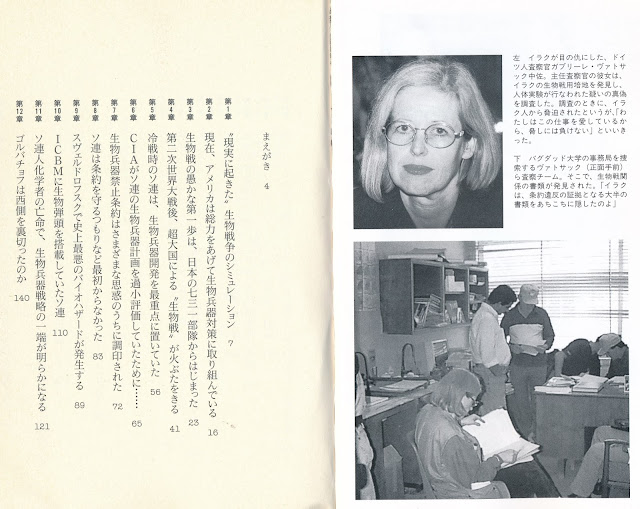 まえがき 4
第1章 〝現実に起きた〟生物戦争のシミュレーション 7
第2章 現在、アメリカは総力をあげて生物兵器対策に取り組んでいる 16
第3章 生物戦の愚かな第一歩は、日本の七三一部隊からはじまった 23
第4章 第二次世界大戦後、超大国による〝生物戦〟が火ぶたをきる 41
第5章 冷戦時のソ連は、生物兵器開発を最重点に置いていた 56
第6章 CIAがソ連の生物兵器計画を過小評価していたために…… 65
第7章 生物兵器禁止条約はさまざまな思惑のうちに調印された 72
第8章 ソ連は条約を守るつもりなど最初からなかった 83
第9章 スヴェルドロフスクで史上最悪のバイオハザードが発生する 89
第10章 ICBMに生物弾頭を搭載していたソ連 110
第11章 ソ連人化学者の亡命で、生物兵器戦略の一端が明らかになる 121
第12章 ゴルバチョフは西側を裏切ったのか 140
左 イラクが目の仇にした、ドイ
ツ人査察官ガブリーレ・ヴァトサ
ック中佐。主任査察官の彼女は、
イラクの生物戦用培地を発見し、
人体実験が行なわれた疑いの真偽
を調査した。調査のときに、イラ
ク人から脅迫されたというが、「わ
たしはこの仕事を愛しているか
ら、脅しには負けない」といいき
った。
下 バグダッド大学の事務局を捜
索するヴァトサック(正面手前)
ら査察チーム。そこで、生物戦関
係の書類が発見された。「イラク
は、条約違反の証拠となる大半の
書類をあちこちに隠したのよ」